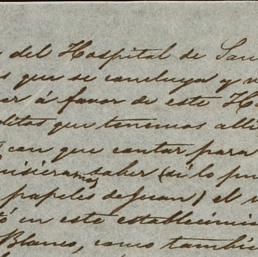 del Hospital de San
que se concluya y
ar á favor de este H
ditos que tenemos allí
con que contar para
quisieramos saber (si lo pu
papeles de Juan) el
en este establecimi
Blanco, como tambié